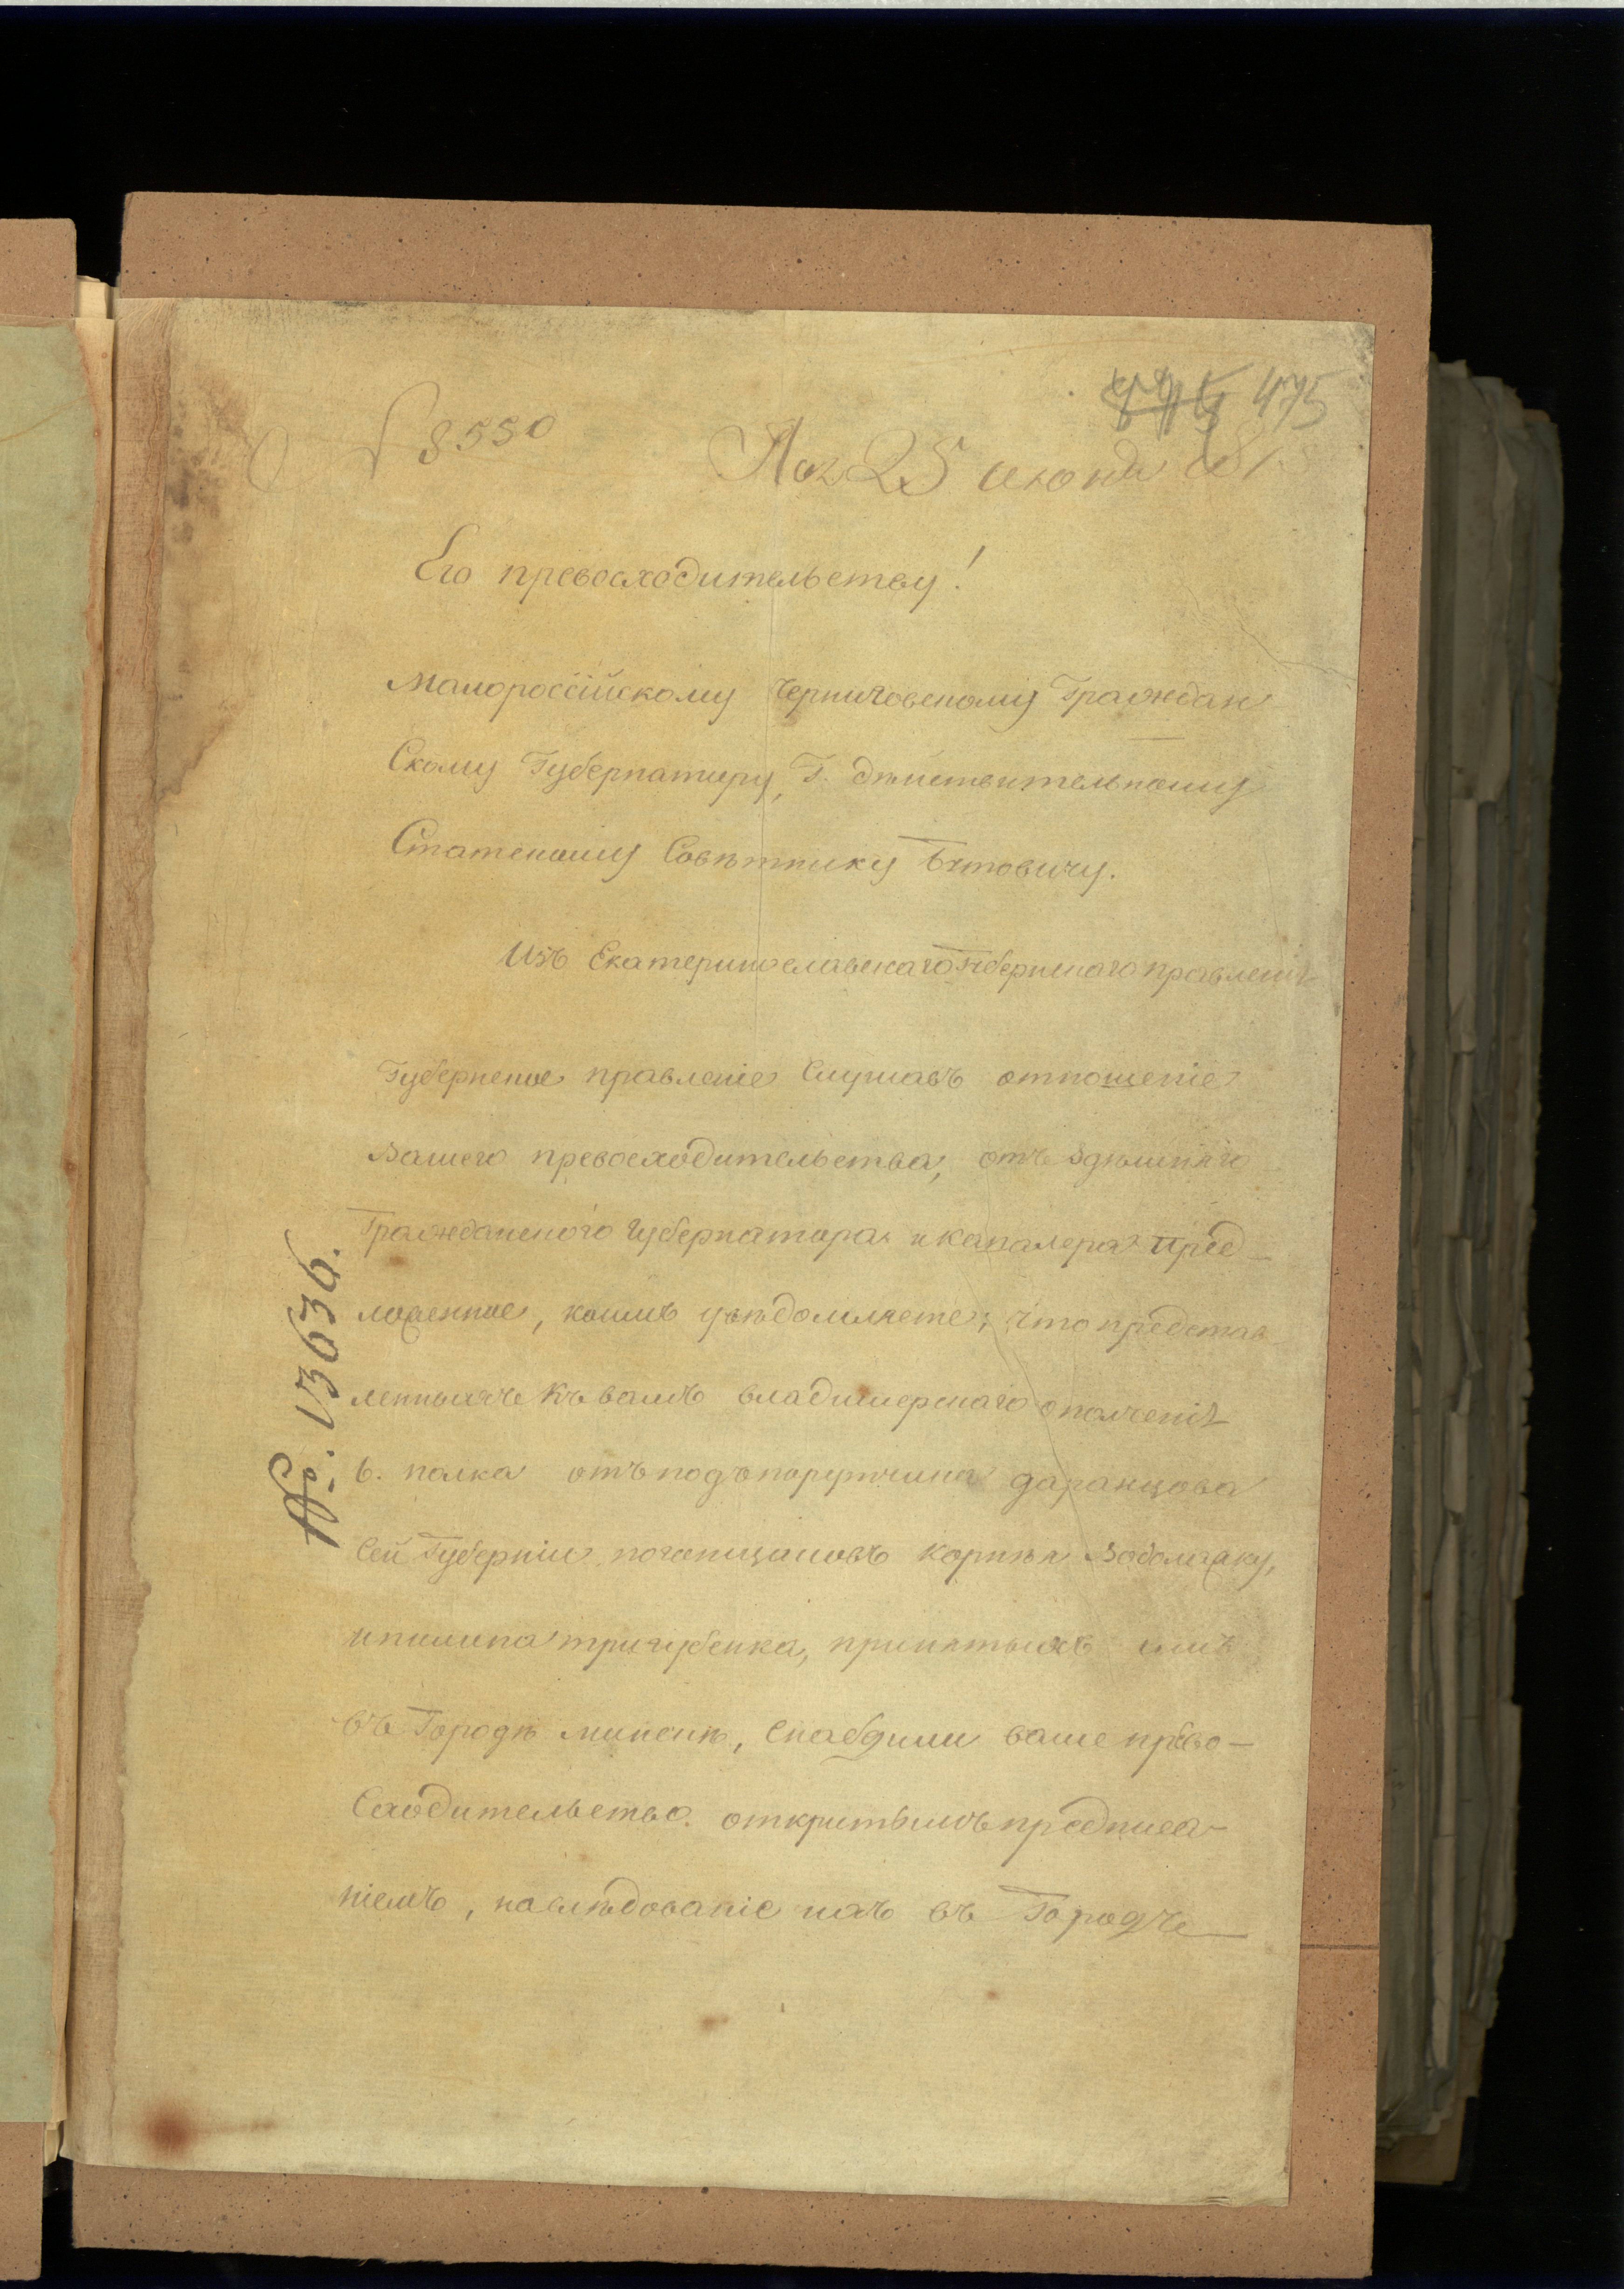 475
8550
25 июня 181
Его превосходительству!
Малороссійскому Черниговскому Граждан
Скому Губернатуру, Г. дѣйствительному
Статскому Совѣтнику Бутовичу.
Изъ Екатеринославскаго Губернскаго правленія
Губернское правленіе Слушавъ отношеніе
Вашего превосходительства, отъ здѣшняго
Гражданского Губернатора и кавалера пред
ложенное, коимъ увѣдомляете, что представ
ленныхъ къ вамъ владимерскаго ополченія
6. полка отъ подъпорутчика
Сей Губерніи погонщиковъ Корнѣя
ипилипа тригубенка, принятыхъ имъ
въ Городѣ минскѣ, снабдили ваше прево-
Сходительство. открытымъ предписа-
ніемъ, наслѣдованіе ихъ въ Городъ
№. 13636.